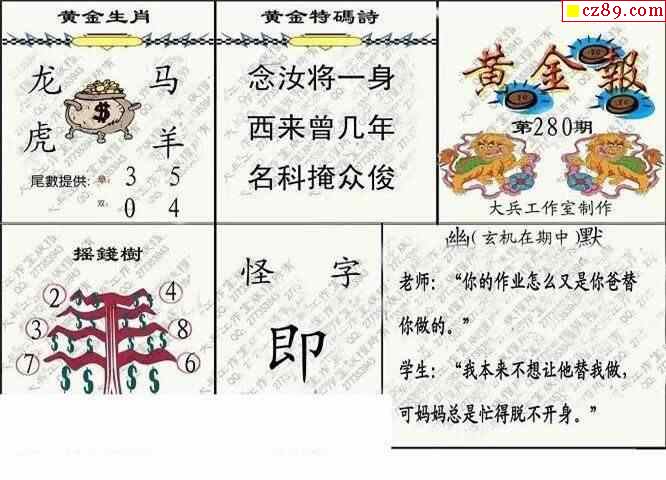 cz89.com
黄金生肖
龙 马
虎 羊
尾數提供: 单: 3 5
双: 0 4
黄金特碼詩
念汝将一身
西来曾几年
名科掩众俊
黄金報
第280期
大兵工作室制作
摇錢樹
2 4
3 8
7 6
怪 字
即
幽(玄机在期中)默
老师：“你的作业怎么又是你爸替
你做的。”
学生：“我本来不想让他替我做，
可妈妈总是忙得脱不开身。”